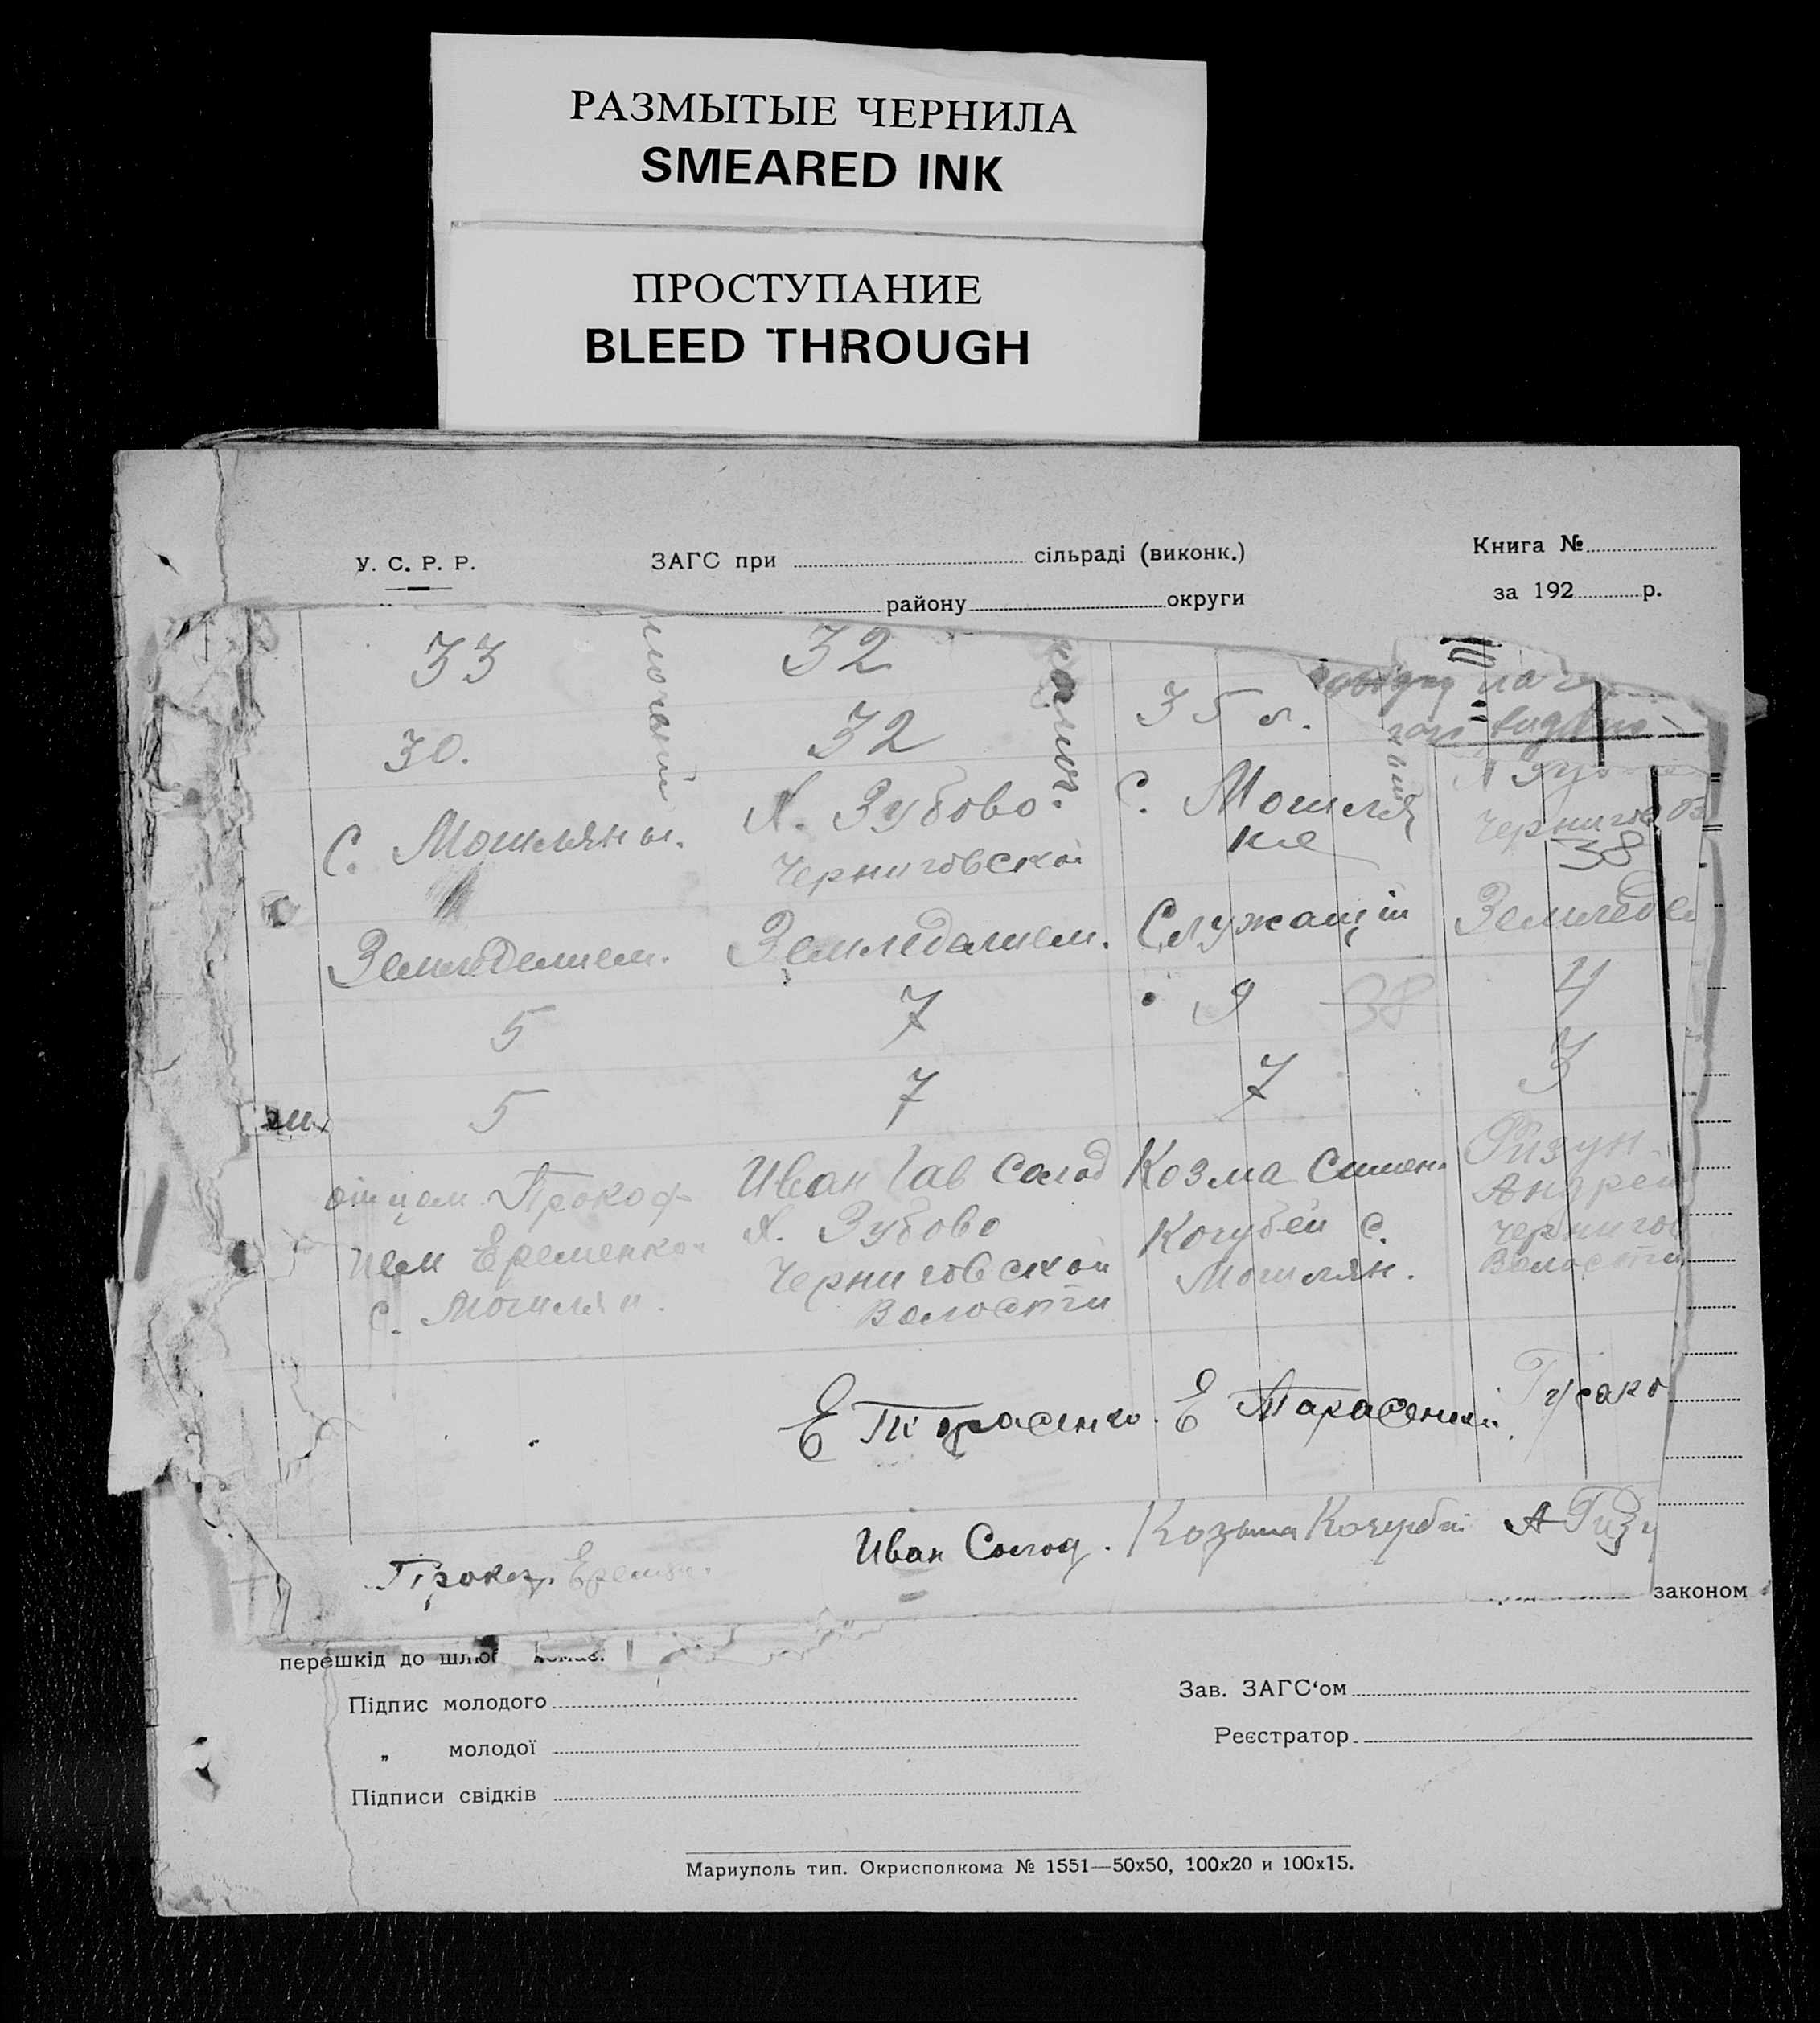 РАЗМЫТЫЕ ЧЕРНИЛА
SMEARED INK
ПРОСТУПАНИЕ
BLEED THROUGH
У. С. Р. Р.
ЗАГС при сільраді (виконк.)
Книга №
району округи
за 192 р.
33 32
35 л.
30. 32
С. Могиляны. Х. Зубово. С. Могиля
Черниговской не Чернигов
38
Земледелием. Земледалием. Служащій Земледе
5 7 9 38 4
5 7 7 3
отцем Прокоф Иван Гав Солод Козма Симен. Ризун
ием Еременко Х. Зубово Кочубей С. Андрей
с. Могилян. Черниговской Могилян. Чернигов
Волости Волости
Е Тарасенко. Е Тарасенко. Гусако
Прокоф. Еремен. Иван Солод. Козьма Кочубей А Ризу
законом
перешкід до шлюб
Підпис молодого
Зав. ЗАГС‘ом
„ молодої
Реєстратор
Підписи свідків
Мариуполь тип. Окрисполкома № 1551—50х50, 100х20 и 100х15.